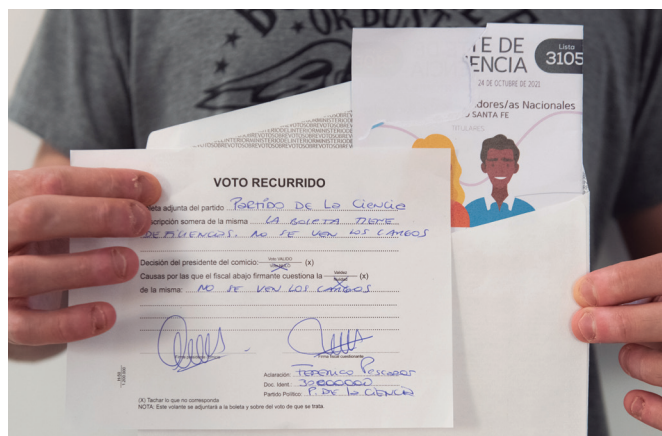 OR BUSTER
TE DE
ENCIA
Lista
3105
24 DE OCTUBRE DE 2021
dores/as Nacionales
SANTA FE
TITULARES
VOTO RECURRIDO
leta adjunta del partido PARTIDO DE LA CIENCIA
scripción somera de la misma LA BOLETA TIENE
FALENCIAS, NO SE VEN LOS CARGOS
Decisión del presidente del comicio: Voto VALIDO (x)
Causas por las que el fiscal abajo firmante cuestiona la Validez (x)
de la misma: NO SE VEN LOS CARGOS
Firma fiscal cuestionante
Aclaración: FEDERICO
Doc. Ident.: 30000000
Partido Político: P. DE LA CIENCIA
(X) Tachar lo que no corresponda
NOTA: Este volante se adjuntará a la boleta y sobre del voto de que se trata.